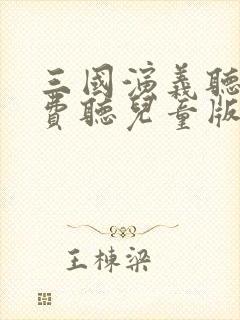 三國演義聽
費聽兒童版
王棟梁